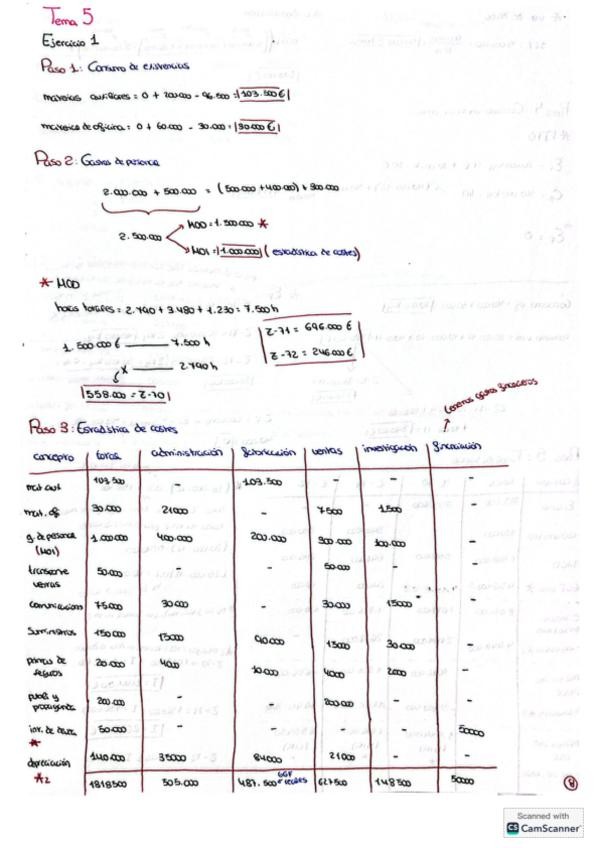 Tema 5
Ejercicio 1
Paso 1: Consumo de existencias
materias auxiliares = 0 + 200.000 - 96.500 = 103.500 €
materias de oficina = 0 + 60.000 - 30.000 = 30.000 €
Paso 2: Gastos de personal
2.000.000 + 500.000 = (500.000 + 400.000) + 300.000
2.500.000
MOD = 1.500.000 *
MOI = 1.000.000 (estadística de costes)
* MOD
horas totales = 2.790 + 3.480 + 1.230 = 7.500 h
1.500.000 € 7.500 h
x 2.790 h
558.000 = Z-70
Z-71 = 696.000 €
Z-72 = 246.000 €
Paso 3: Estadística de costes
concepto total administración fabricación ventas investigación financiación
mat aux 103.500 - 103.500 - - -
mat. of 30.000 21000 - 7500 1.500 -
g. de personal (MOI) 1.000.000 400.000 200.000 300.000 100.000 -
transporte ventas 50.000 - - 50.000 - -
comunicaciones 75.000 30.000 - 30.000 15000 -
Suministros 150.000 15000 90.000 15000 30.000 -
primas de seguros 20.000 4000 10.000 4000 2000 -
publ y propaganda 200.000 - - 200.000 - -
int. de deudas * 50.000 - - - - 50000
depreciación 140.000 35000 84000 21000 - -
*2 1818500 505.000 487.500 GGF 627500 148500 50000
8
Scanned with
CS CamScanner